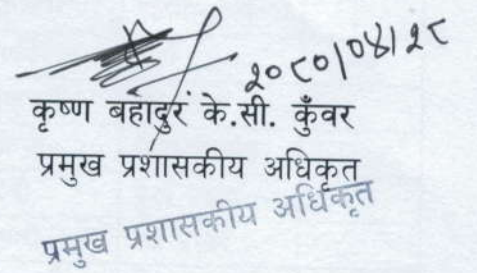 २०८०/०४/२८
कृष्ण बहादुर के.सी. कुँवर
प्रमुख प्रशासकीय अधिकृत
प्रमुख प्रशासकीय अधिकृत